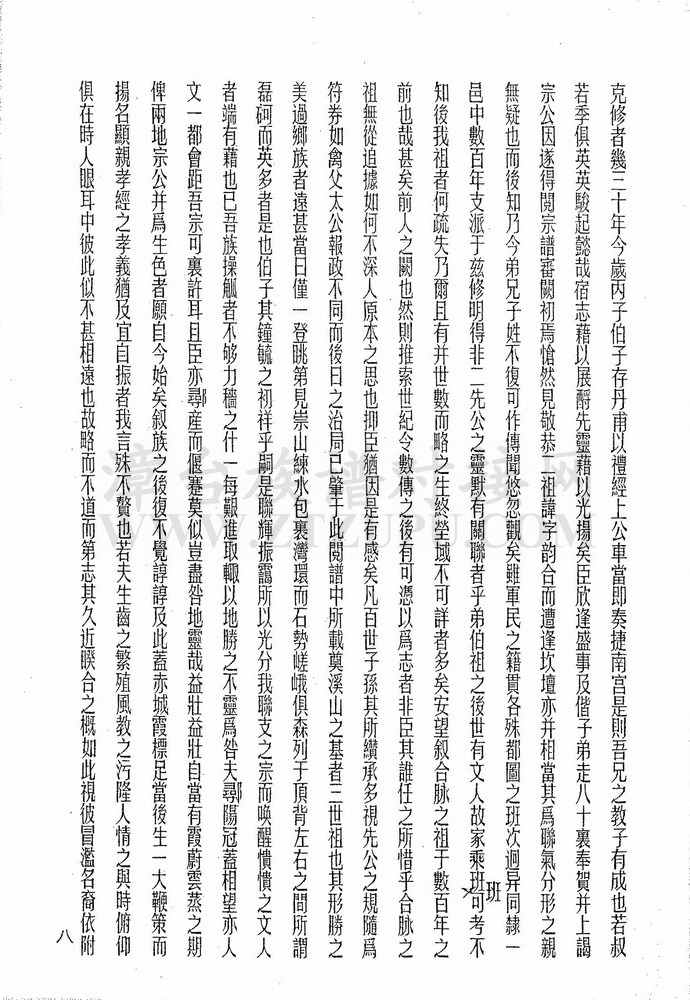 克修者幾三十年今歲丙子伯子存丹甫以禮經上公車當即奏捷南宮是則吾兄之教子有成也若叔
若季俱英英駿起懿哉宿志藉以展酹先靈藉以光揚矣臣欣逢盛事及偕子弟走八十裏奉賀并上謁
宗公因遂得閱宗譜審闕初焉愴然見敬恭二祖諱字韵合而遭逢坎壇亦并相當其爲聯氣分形之親
無疑也而後知乃今弟兄子姓不復可作傳聞悠忽觀矣雖軍民之籍貫各殊都圖之班次迥异同隸一
邑中數百年支派于兹修明得非二先公之靈默有關聯者乎弟伯祖之後世有文人故家乘班可考不
班
知後我祖者何疏失乃爾且有并世數而略之生終塋域不可詳者多矣安望叙合脉之祖于數百年之
前也哉甚矣前人之闕也然則推索世紀令數傳之後有可憑以爲志者非臣其誰任之所惜乎合脉之
祖無從追據如何不深人原本之思也抑臣猶因是有感矣凡百世子孫其所纘承多視先公之規隨爲
符券如禽父太公報政不同而後日之治局已肇于此閱譜中所載奠溪山之基者三世祖也其形勝之
美過鄉族者遠甚當日僅一登眺第見崇山練水包裏灣環而石勢嵯峨俱森列于頂背左右之間所謂
磊砢而英多者是也伯子其鐘毓之初祥乎嗣是聯輝振靄所以光分我聯支之宗而喚醒憒憒之文人
者端有藉也已吾族操觚者不够力穡之什一每艱進取輙以地勝之不靈爲咎夫鄩陽冠蓋相望亦人
文一都會距吾宗可裏許耳且臣亦鄩産而偃蹇莫似豈盡咎地靈哉益壯益壯自當有霞蔚雲蒸之期
俾兩地宗公并爲生色者願自今始矣叙族之後復不覺諄諄及此蓋赤城霞標足當後生一大鞭策而
揚名顯親孝經之孝義猶及宜自振者我言殊不贅也若夫生齒之繁殖風教之污隆人情之與時俯仰
俱在時人眼耳中彼此似不甚相遠也故略而不道而第志其久近睽合之概如此視彼冒濫名裔依附
八
WWW.ZTZUPU.COM